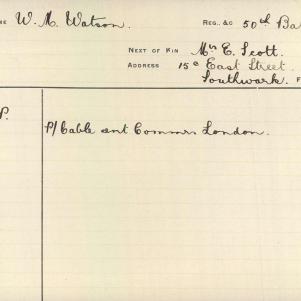 ME W. M. Watson. REG., &C 50th Ba
NEXT OF KIN Mrs E. Scott.
ADDRESS 15c East Street.
Southwark. F
P.
P/ Cable sent Commrs London.